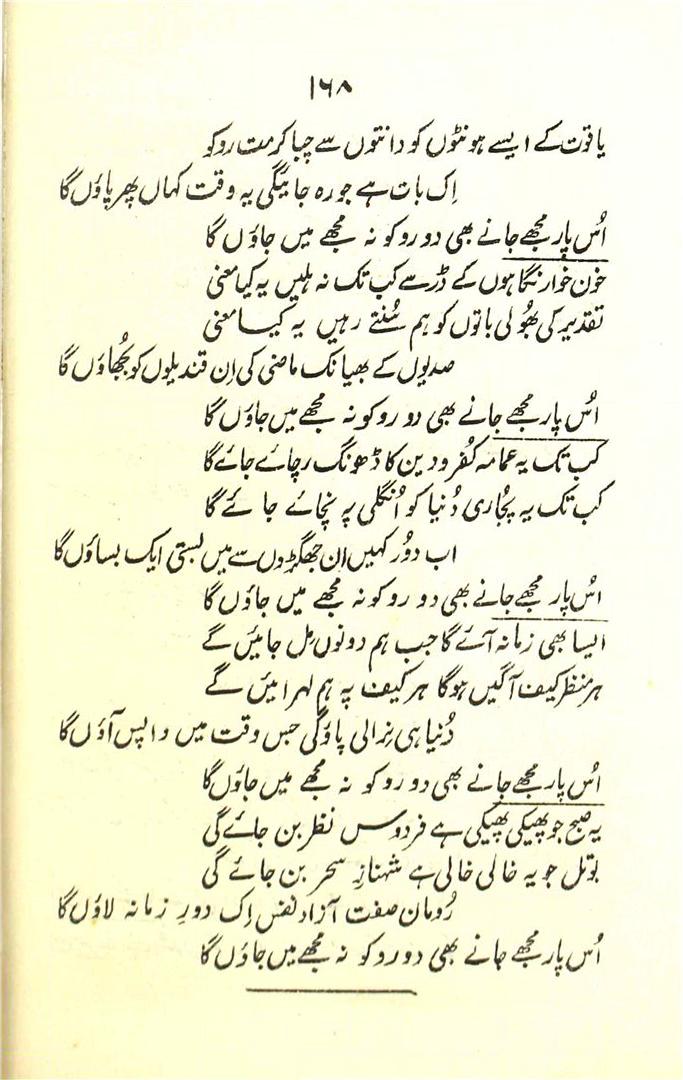 ۱۶۸
یاقوت کے ایسے ہونٹوں کو دانتوں سے چبا کر مت روکو
اِک بات ہے جو رہ جائیگی یہ وقت کہاں پھر پاؤں گا
اُس پار مجھے جانے بھی دو روکو نہ مجھے میں جاؤں گا
خون خوار نگاہوں کے ڈر سے کب تک نہ ہلیں یہ کیا معنی
تقدیر کی بھُولی باتوں کو ہم سُنتے رہیں یہ کیا معنی
صدیوں کے بھیانک ماضی کی اِن قندیلوں کو بُجھاؤں گا
اُس پار مجھے جانے بھی دو روکو نہ مجھے میں جاؤں گا
کب تک یہ عمامہ کفر و دین کا ڈھونگ رچائے جائے گا
کب تک یہ پُجاری دُنیا کو اُنگلی پہ نچائے جائے گا
اب دوُر کہیں اِن جھگڑوں سے میں بستی ایک بساؤں گا
اُس پار مجھے جانے بھی دو روکو نہ مجھے میں جاؤں گا
ایسا بھی زمانہ آئے گا جب ہم دونوں مِل جائیں گے
ہر منظر کیف آگیں ہوگا ہر کیف پہ ہم لہرائیں گے
دُنیا ہی نِرالی پاؤگی جس وقت میں واپس آؤں گا
اُس پار مجھے جانے بھی دو روکو نہ مجھے میں جاؤں گا
یہ صبح جو پھیکی پھیکی ہے فردوس نظر بن جائے گی
بوتل جو یہ خالی خالی ہے شہنازِ سحر بن جائے گی
رُومان صفت آزاد نفس اِک دورِ زمانہ لاؤں گا
اُس پار مجھے جانے بھی دو روکو نہ مجھے میں جاؤں گا